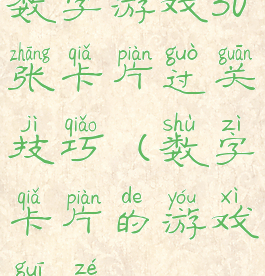 数字游戏50
zhāng qiǎ piàn guò guān
张卡片过关
jì qiǎo ( shù zì
技巧(数字
qiǎ piàn de yóu xì
卡片的游戏
guī zé